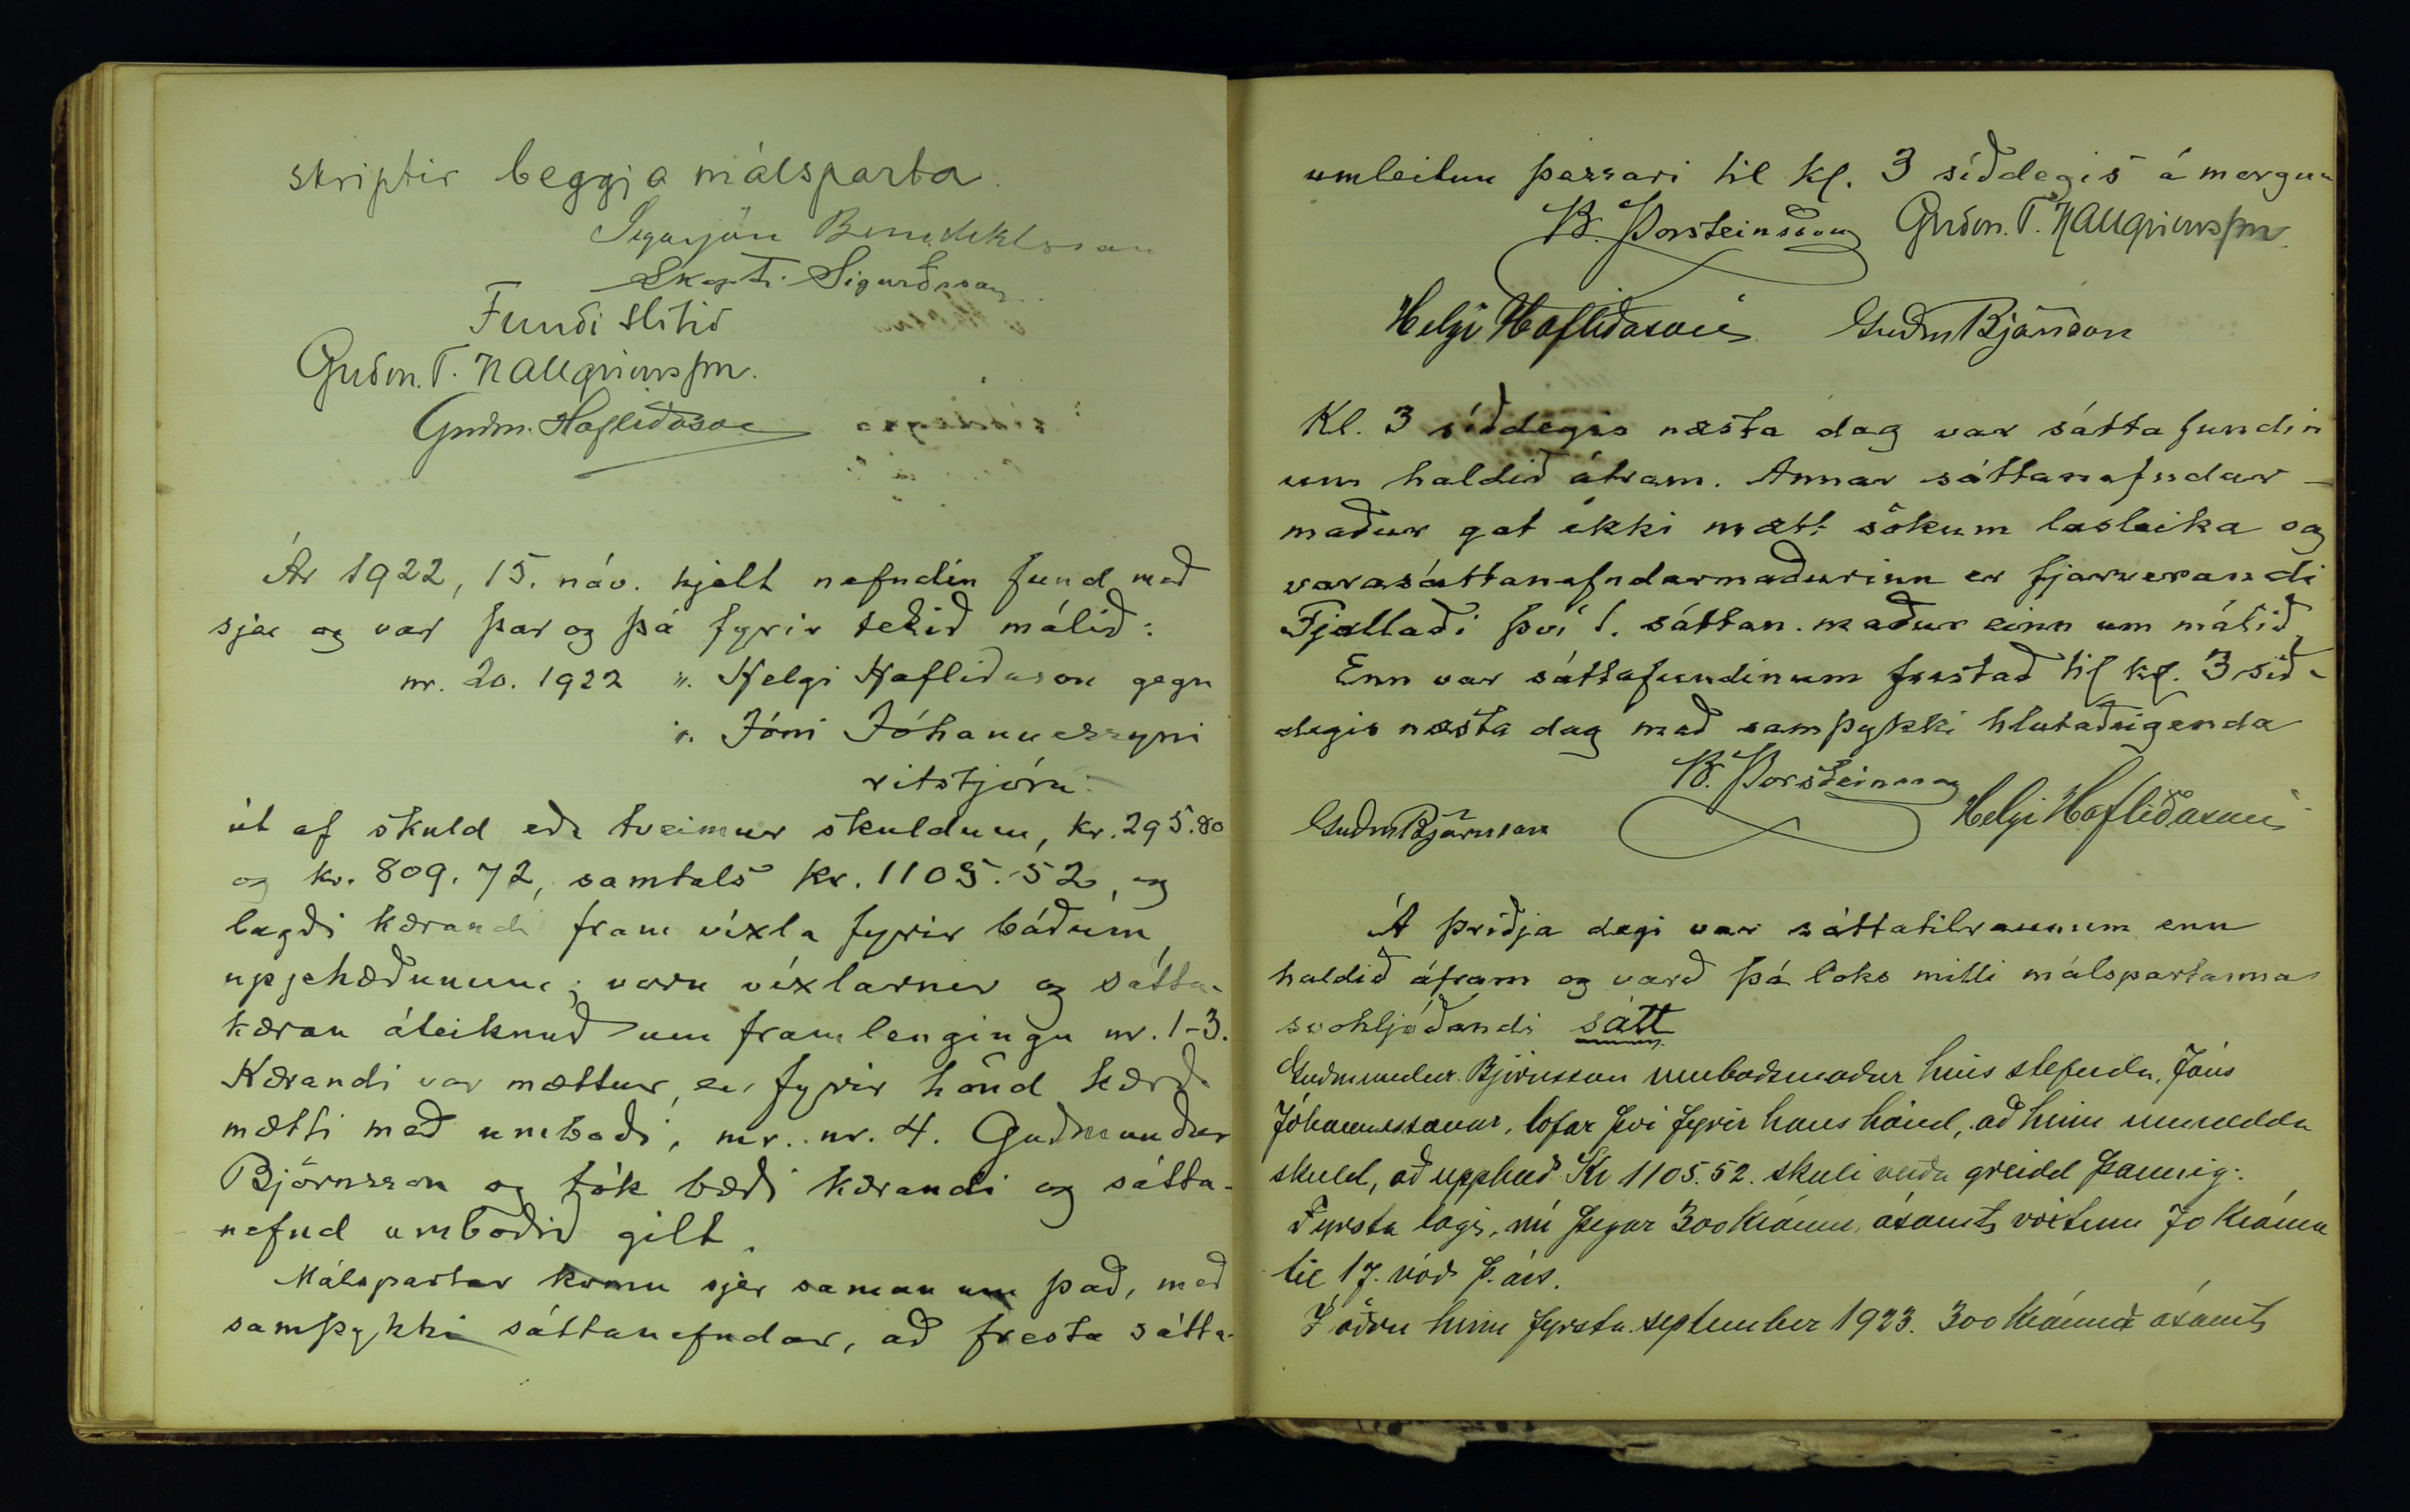 skriptir beggja málsparta.
Sigurjón Benediktsson
Skapti Sigurðsson
Fundi slitið
Guðm. T. Hallgrímsson.
Guðm. Hafliðason
Ár 1922, 15. nóv. hjelt nefndin fund með
sjer og var þar og þá fyrir tekið málið:
nr. 20. 1922 Helgi Hafliðason gegn
Jóni Jóhannessyni
ritstjóra.
út af skuld eða tveimur skuldum, kr. 295.80
og kr. 809.72, samtals kr. 1105.52, og
lagði kærandi fram víxla fyrir báðum
upphæðunum; voru víxlarnir og sátta-
kæran áteiknuð um framlengingu nr. 1-3.
Kærandi var mættur, en fyrir hönd kærða
mætti með umboði, mr. nr. 4. Guðmundur
Björnsson og tók bæði kærandi og sátta-
nefnd umboðið gilt.
Málspartar komu sjer saman um það, með
samþykki sáttanefndar, að fresta sátta-
umleitun þessari til kl. 3 síðdegis á morgun
B. Þorsteinsson Guðm. T. Hallgrímsson
Helgi Hafliðason Guðm Björnson
Kl. 3 síðdegis næsta dag var sáttafundin
um haldið áfram. Annar sáttanefndar-
maður gat ekki mætt sökum lasleika og
varasáttanefndarmaðurinn er fjarverandi
Fjallaði því 1. sáttan.maður einn um málið.
Enn var sáttafundinum frestað til kl. 3 síð-
degis næsta dag með samþykki hlutaðeigenda
B. Þorsteinsson
Guðm Björnson Helgi Hafliðason
Á þriðja degi var sáttatilraunum enn
haldið áfram og varð þá loks milli málspartanna
svohljóðandi sátt
Guðmundur Björnsson umboðsmaður hins stefnda, Jóns
Jóhannessonar, lofar því fyrir hans hönd, að hin umrædda
skuld, að upphæð Kr 1105.52. skuli verða greidd þannig:
Fyrsta lagi, nú þegar 300 krónur, ásamt vöxtum 70 krónur
til 17. nóv þ. árs.
Í öðru hinn fyrsta september 1923. 300 krónur ásamt